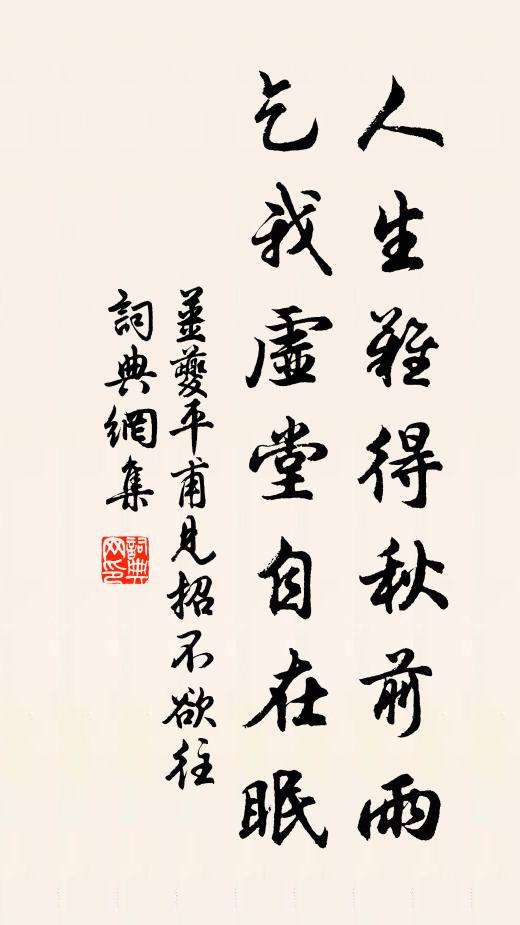 人生難得秋前雨
乞我虛堂自在眠
薑夔平甫見招不欲往
詞典網集
詞典
网印